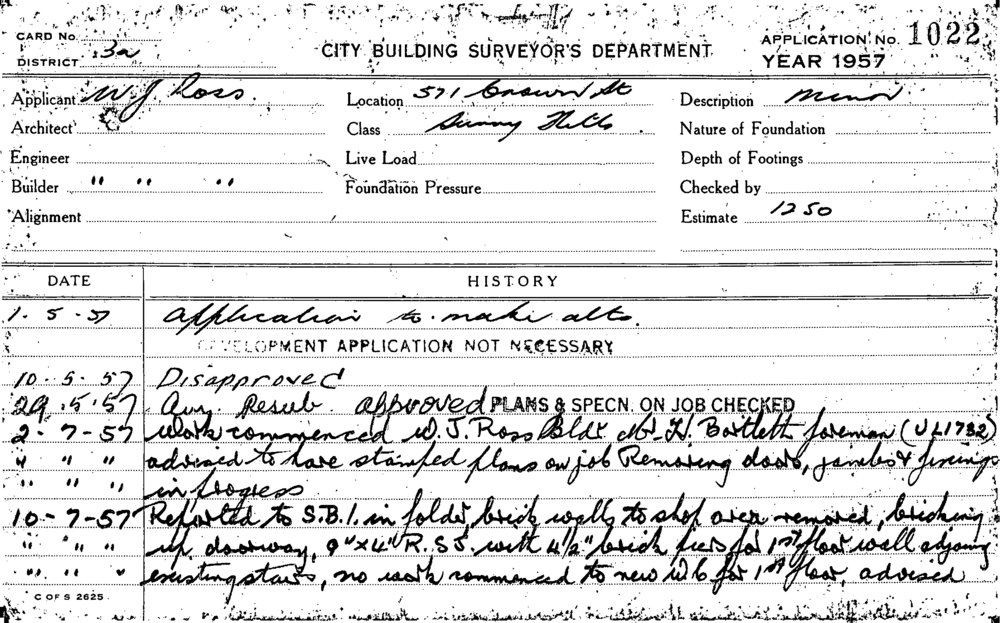 CARD No.
DISTRICT 3a
CITY BUILDING SURVEYOR'S DEPARTMENT
APPLICATION No. 1022
YEAR 1957
Applicant W J Ross.
Location 571 Crown St
Description minor
Architect
Class Sunny
Nature of Foundation
Engineer
Live Load
Depth of Footings
Builder " " "
Foundation Pressure
Checked by
Alignment
Estimate 1250
DATE
HISTORY
1. 5. 57 Application to make alts.
DEVELOPMENT APPLICATION NOT NECESSARY
10. 5. 57 Disapproved
29. 5. 57 Resub. approved PLANS & SPECN. ON JOB CHECKED
2-7-57 work commenced W. J. Ross Bldr Mr. H. Bartlett foreman (UL1732)
" " " advised to have stamped plans on job Removing doors, jambs &
" " " in progress
10-7-57 Reported to S.B.I. in folder, brick walls to shop area removed, bricking
" " " up doorway, 9"x4" R.S.J. with 4½" brick piers for 1st floor wall adjoing
" " " existing stairs, no work commenced to new W6 for 1st floor, advised
C OF S 2625